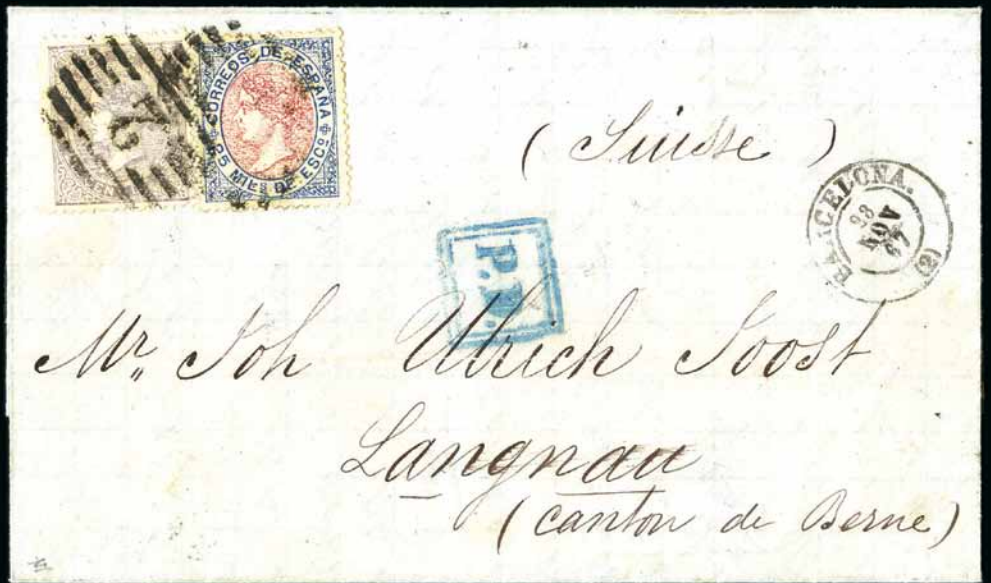 CORREOS DE ESPAÑA
25 MILS DE ESCO
2
(Suisse)
BARCELONA.
NOV
67
(2)
P.D.
Mr. Joh Ulrich Joost
Langnau
(canton de Berne)